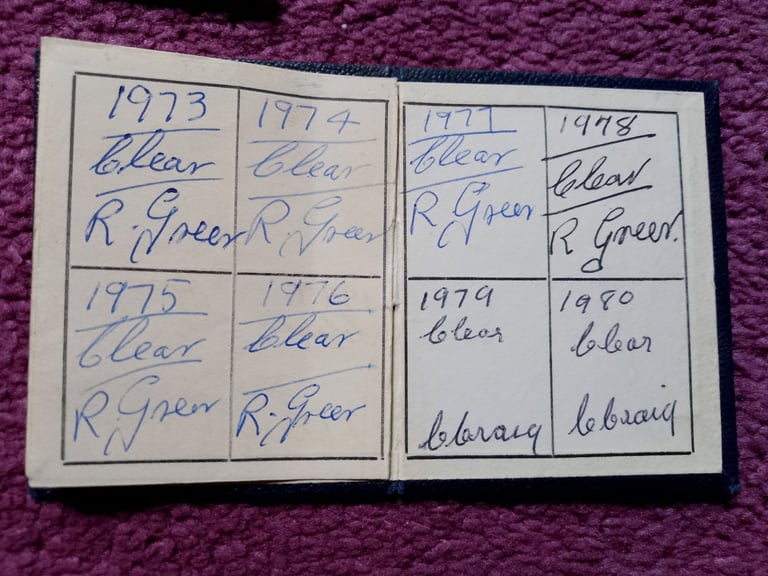 1973
Clear
R. Green
1974
Clear
R. Green
1975
Clear
R Green
1976
Clear
R. Green
1977
Clear
R. Green
1978
Clear
R Green.
1979
Clear
C Craig
1980
Clear
C Craig